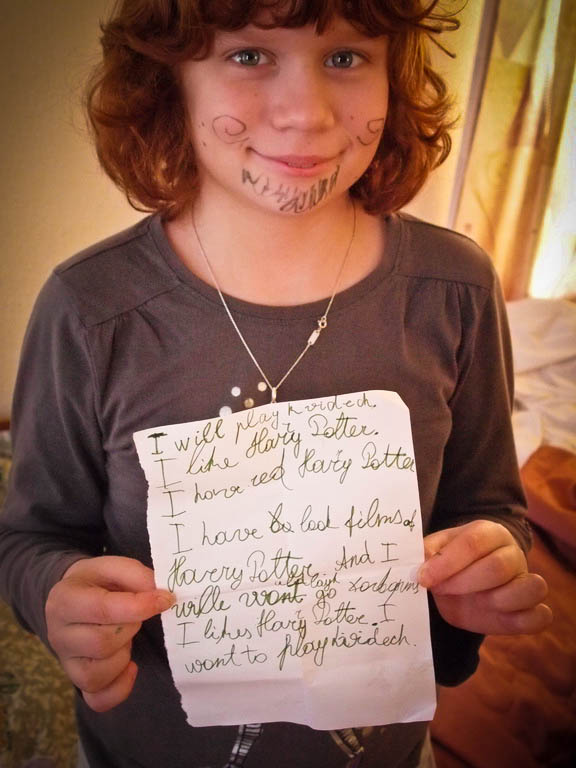 I will play kvidech.
I like Harry Potter.
I have red Harry Potter
I have to look films of
Harry Potter. And I
will want go
I likes Harry Potter. I
want to play kvidech.